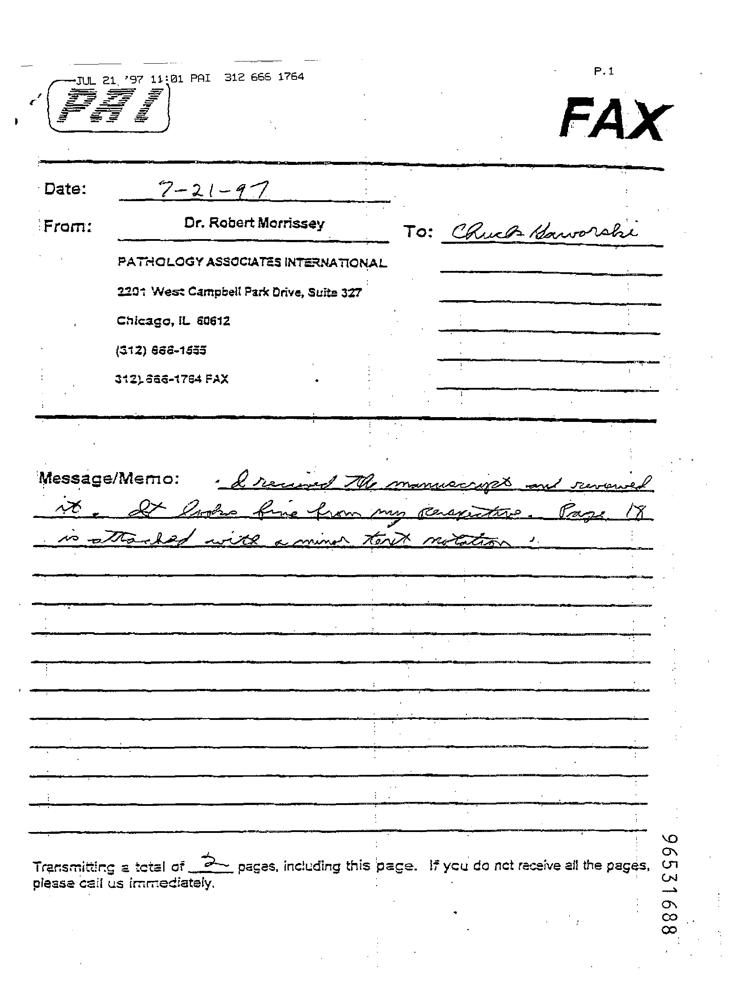 JUL 21 '97 11:01 PAI 312 666 1764 P.1
PAI
FAX
Date: 7-21-97
From: Dr. Robert Morrissey
To: Chuck Gaworski
PATHOLOGY ASSOCIATES INTERNATIONAL
2201 West Campbell Park Drive, Suite 327
Chicago, IL 60612
(312) 666-1555
312) 666-1764 FAX
Message/Memo: I received the manuscript and reviewed
it. It looks fine from my perspective. Page 18
is attached with a minor text notation.
Transmitting a total of 2 pages, including this page. If you do not receive all the pages,
please call us immediately.
96531688